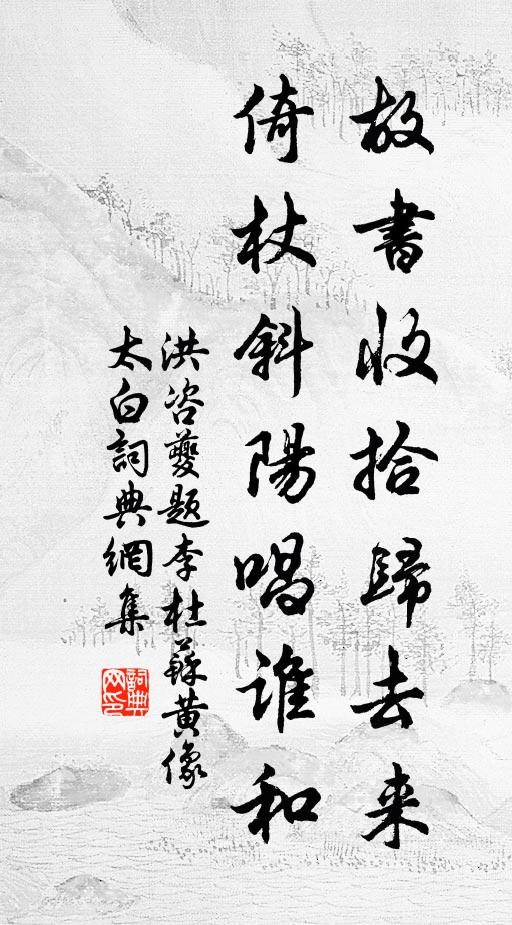 故書收拾歸去来
倚杖斜陽唱谁和
洪咨夔题李杜蘇黄像
太白詞典網集
詞典网印